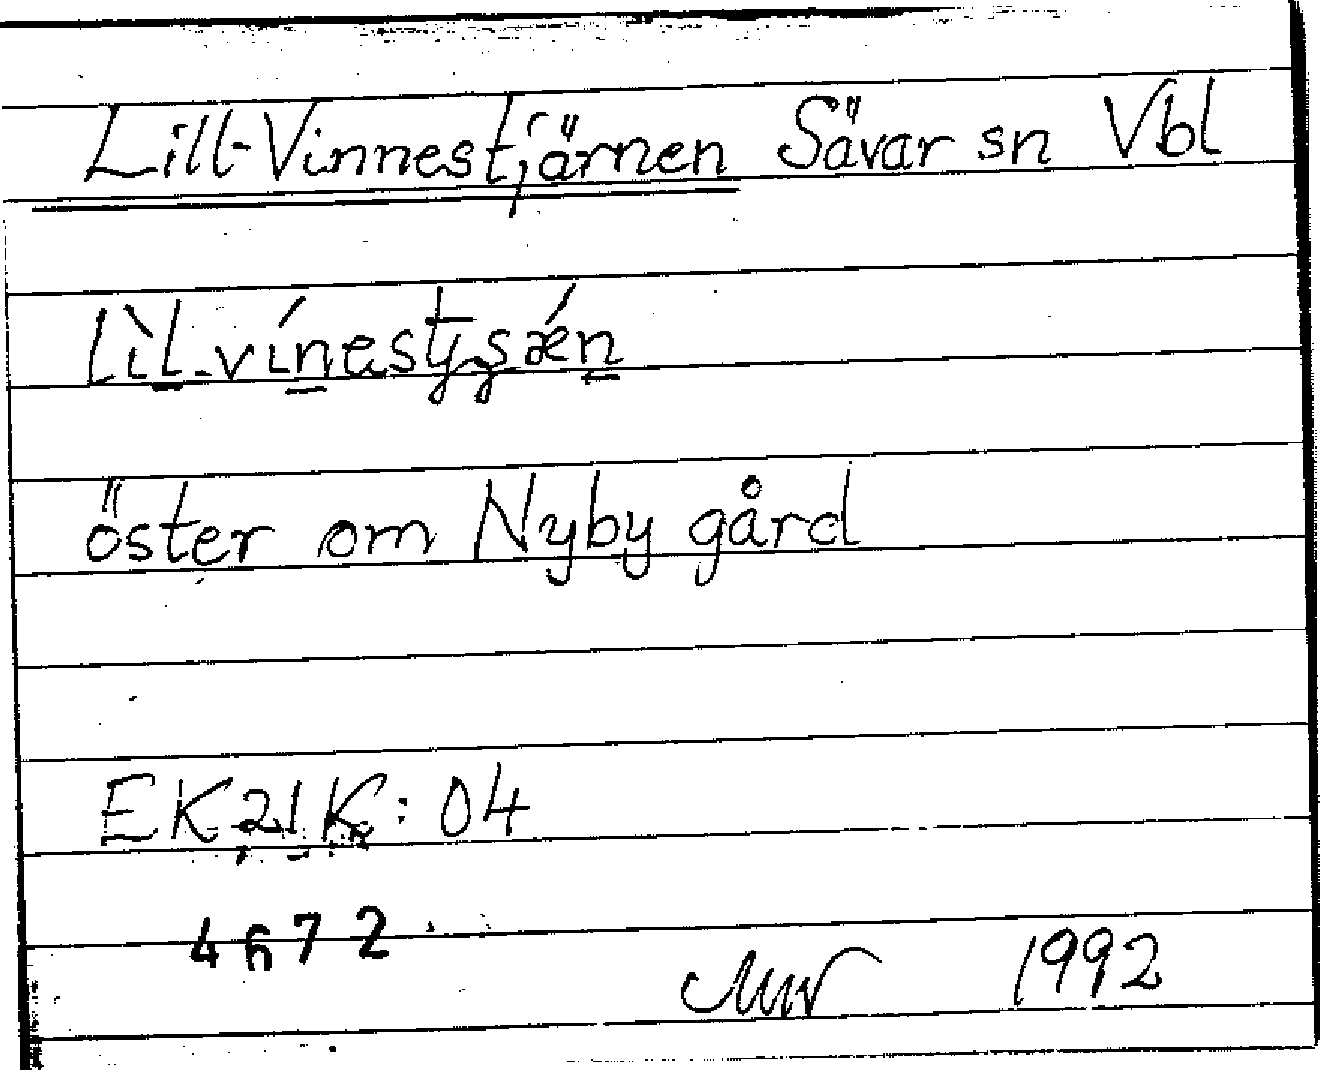 Lill-Vinnestjärnen Sävar sn Vbl
öster om Nyby gård
EK21K: 04
4672
1992